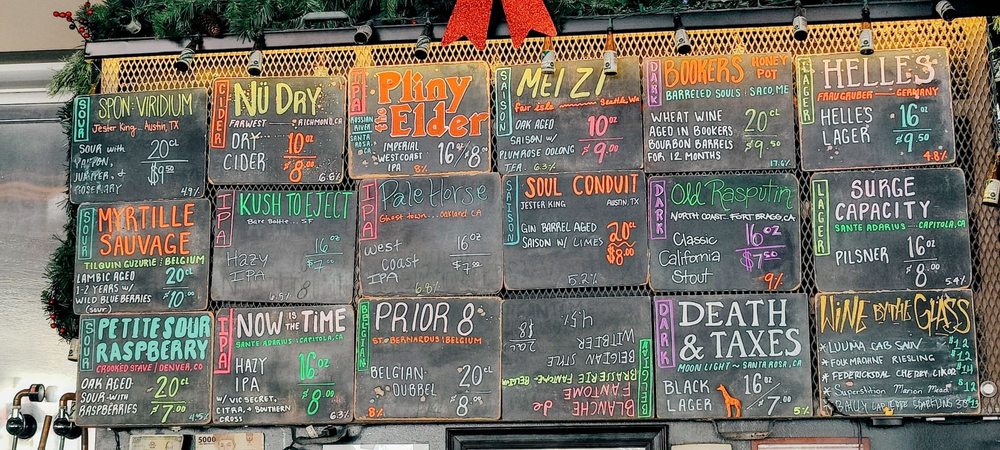 SOUR
SPON: VIRIDIUM
Jester King. Austin, TX
SOUR with
JUNIPER, &
ROSEMARY
20cl
$9.50
4.9%
CIDER
NÜ DRY
FARWEST RICHMOND, CA
DRY
CIDER
10oz
$8.00
6.8%
IPA
RUSSIAN
RIVER
SANTA
ROSA,
CA
Pliny
the Elder
IMPERIAL
WESTCOAST
IPA
16oz/8.00
8%
SAISON
MEI ZI
Fair isle Seattle, WA
OAK AGED
SAISON w/
PLUM ROSE OOLONG
TEA
10oz
$9.00
6.3%
DARK
BOOKERS HONEY
POT
BARRELED SOULS SACO, ME
WHEAT WINE
AGED IN BOOKERS
BOURBON BARRELS
FOR 12 MONTHS
20cl
$9.50
17.6%
LAGER
HELLES
FRAUGRUBER GERMANY
HELLES
LAGER
16oz
$9.50
4.8%
SOUR
MYRTILLE
SAUVAGE
TILQUIN GUEUZERIE | BELGIUM
LAMBIC AGED
1-2 YEARS w/
WILD BLUEBERRIES
(SOUR)
20cl
$10.00
IPA
KUSH TO EJECT
Bare Bottle. SF
Hazy
IPA
16oz
$7.00
6.5%
IPA
Pale Horse
Ghost town... oakland CA
West
coast
IPA
16oz
$7.50
6.8%
SAISON
SOUL CONDUIT
JESTER KING AUSTIN, TX
GIN BARREL AGED
SAISON w/ LIMES
20cl
$8.00
5.2%
DARK
Old Rasputin
NORTH COAST. FORT BRAGG, CA
Classic
California
Stout
16oz
$7.50
9%
LAGER
SURGE
CAPACITY
SANTE ADARIUS CAPITOLA, CA
PILSNER
16oz
8.00
5.4%
SOUR
PETITE SOUR
RASPBERRY
CROOKED STAVE / DENVER, CO
OAK AGED
SOUR WITH
RASPBERRIES
20cl
$7.00
4.5%
IPA
NOW IS THE TIME
SANTE ADARIUS | CAPITOLA, CA
HAZY
IPA
w/ VIC SECRET,
CITRA, & SOUTHERN
CROSS
16oz
$8.00
6.3%
BELGIAN
PRIOR 8
ST. BERNARDUS | BELGIUM
BELGIAN
DUBBEL
20cl
8.00
8%
BLANCHE de
FANTOME
BRASSERIE FANTOME
BELGIAN STYLE
WITBIER
$8
4.5%
DARK
DEATH
& TAXES
MOON LIGHT ~ SANTA ROSA, CA
BLACK
LAGER
16oz
$7.00
5%
WINE BY THE GLASS
FOLKMACHINE RIESLING $12
Superstition Marion Mead
5000